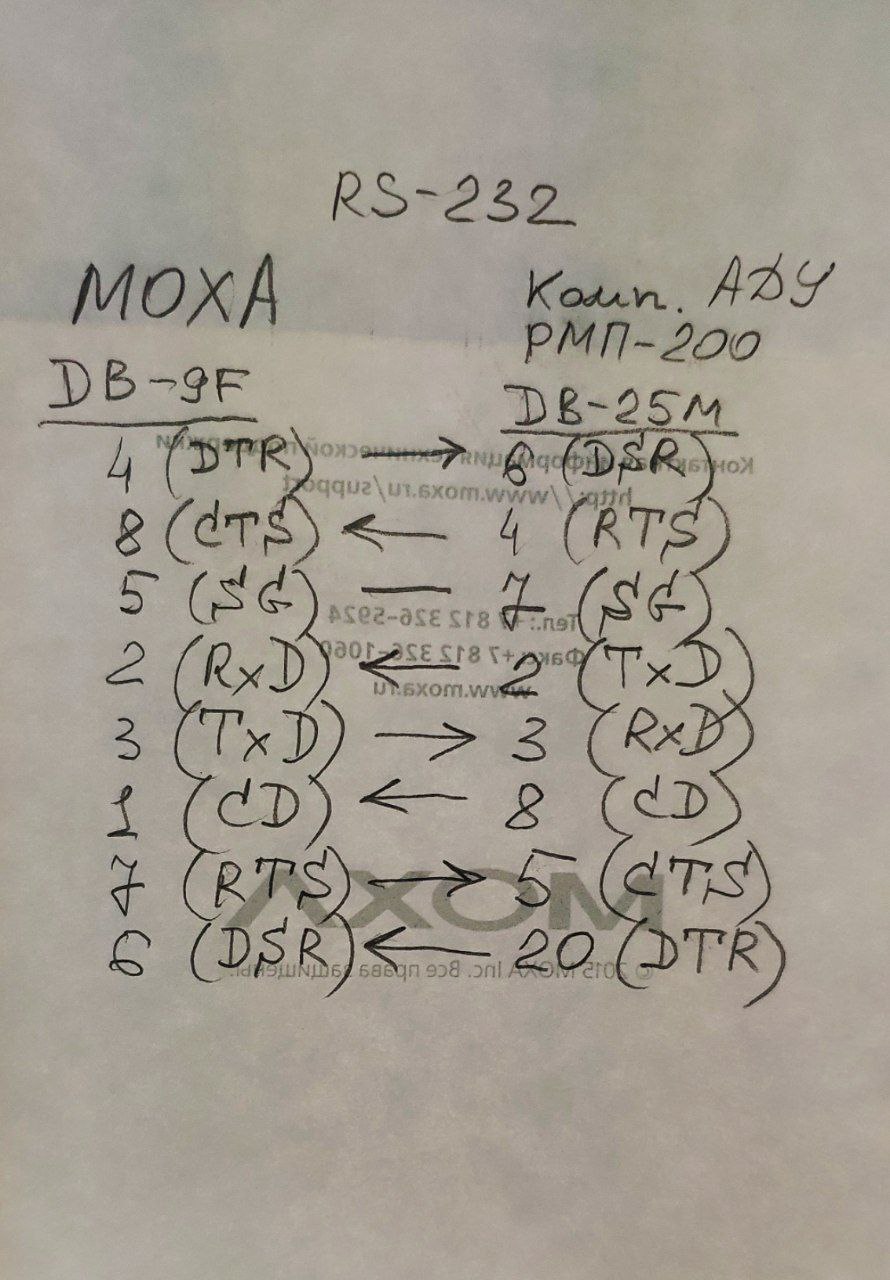 RS-232
MOXA
Комп. АДУ
РМП-200
DB-9F
DB-25M
4 (DTR) → 6 (DSR)
8 (CTS) ← 4 (RTS)
5 (SG) — 7 (SG)
2 (RxD) ← 2 (TxD)
3 (TxD) → 3 (RxD)
1 (CD) ← 8 (CD)
7 (RTS) → 5 (CTS)
6 (DSR) ← 20 (DTR)
Контактная информация технической поддержки
http://www.moxa.ru/support
Тел.: +7 812 326-5924
Факс: +7 812 326-1060
www.moxa.ru
MOXA
© 2015 MOXA Inc. Все права защищены.